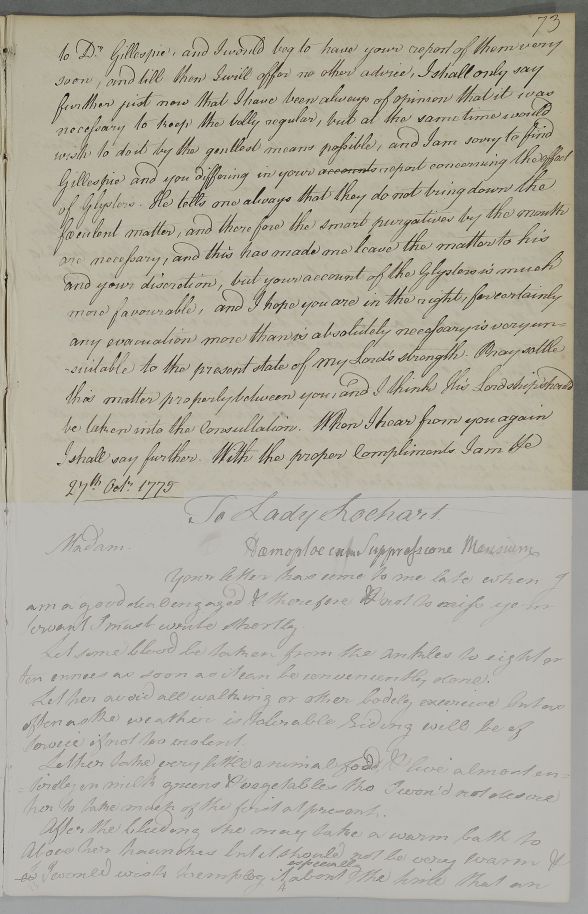 73
to Dr. Gillespie, and I would beg to have your report of them very
soon, and till then I will offer no other advice, I shall only say
further just now that I have been always of opinion that it was
necessary to keep the belly regular, but at the same time would
wish to do it by the gentlest means possible, and I am sorry to find
Gillespie and you differing in your accounts report concerning the effect
of Glysters. He tells one always that they do not bring down the
fœculent matter, and therefore the smart purgatives by the mouth
are necessary, and this has made me leave the matter to his
and your discretion, but your account of the Glysters is much
more favourable, and I hope you are in the right, for certainly
any evacuation more than is absolutely necessary is very un=
-suitable to the present state of my Lord's strength. Pray settle
this matter properly between you, and I think His Lordship should
be taken into the Consultation. When I hear from you again
I shall say further. With the proper Compliments I am &c
27th Octr. 1775
To Lady Lochart
Madam. Hæmoptoe cum Suppressione Mensium
Your letter has come to me late when I
am a good deal engaged & therefore & not to miss your
servant I must write shortly.
Let some blood be taken from the ankles to eight or
ten ounces as soon as it can be conveniently done.
Let her avoid all walking or other bodely exercise but as
often as the weather is tolerable Riding will be of
service if not too violent.
Let her take very little animal food & live almost en=
=tirely on milk greens & vegetables tho I wou'd not desire
her to take much of the first at present.
After the bleeding she may take a warm bath to
above her haunches but it should not be very warm &
I would wish her employ it about the time that an